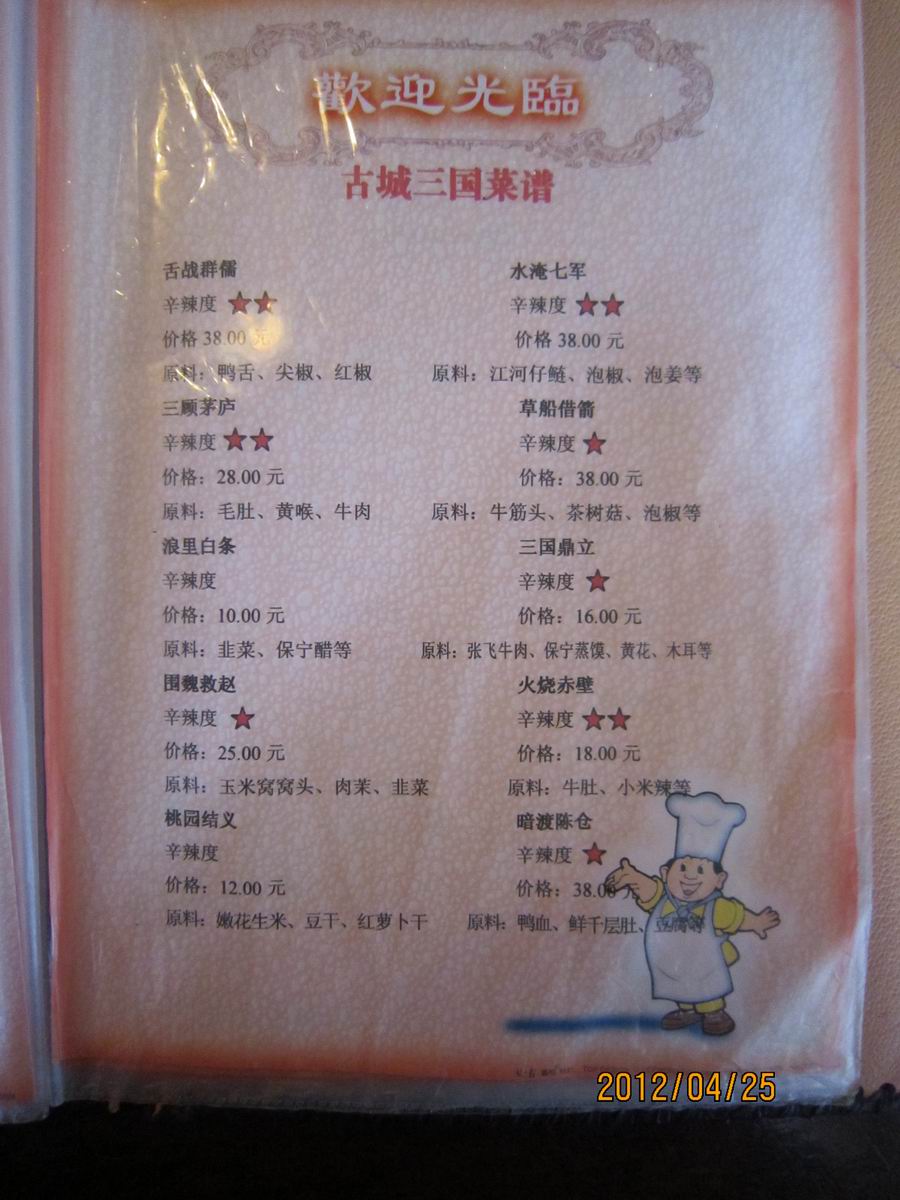 歡迎光臨
古城三国菜谱
舌战群儒
辛辣度
价格 38.00 元
原料：鸭舌、尖椒、红椒
水淹七军
辛辣度
价格 38.00 元
原料：江河仔鲢、泡椒、泡姜等
三顾茅庐
辛辣度
价格：28.00 元
原料：毛肚、黄喉、牛肉
草船借箭
辛辣度
价格：38.00 元
原料：牛筋头、茶树菇、泡椒等
浪里白条
辛辣度
价格：10.00 元
原料：韭菜、保宁醋等
三国鼎立
辛辣度
价格：16.00 元
原料：张飞牛肉、保宁蒸馍、黄花、木耳等
围魏救赵
辛辣度
价格：25.00 元
原料：玉米窝窝头、肉茉、韭菜
火烧赤壁
辛辣度
价格：18.00 元
原料：牛肚、小米辣等
桃园结义
辛辣度
价格：12.00 元
原料：嫩花生米、豆干、红萝卜干
暗渡陈仓
辛辣度
价格：38.00 元
原料：鸭血、鲜千层肚、豆腐等
2012/04/25